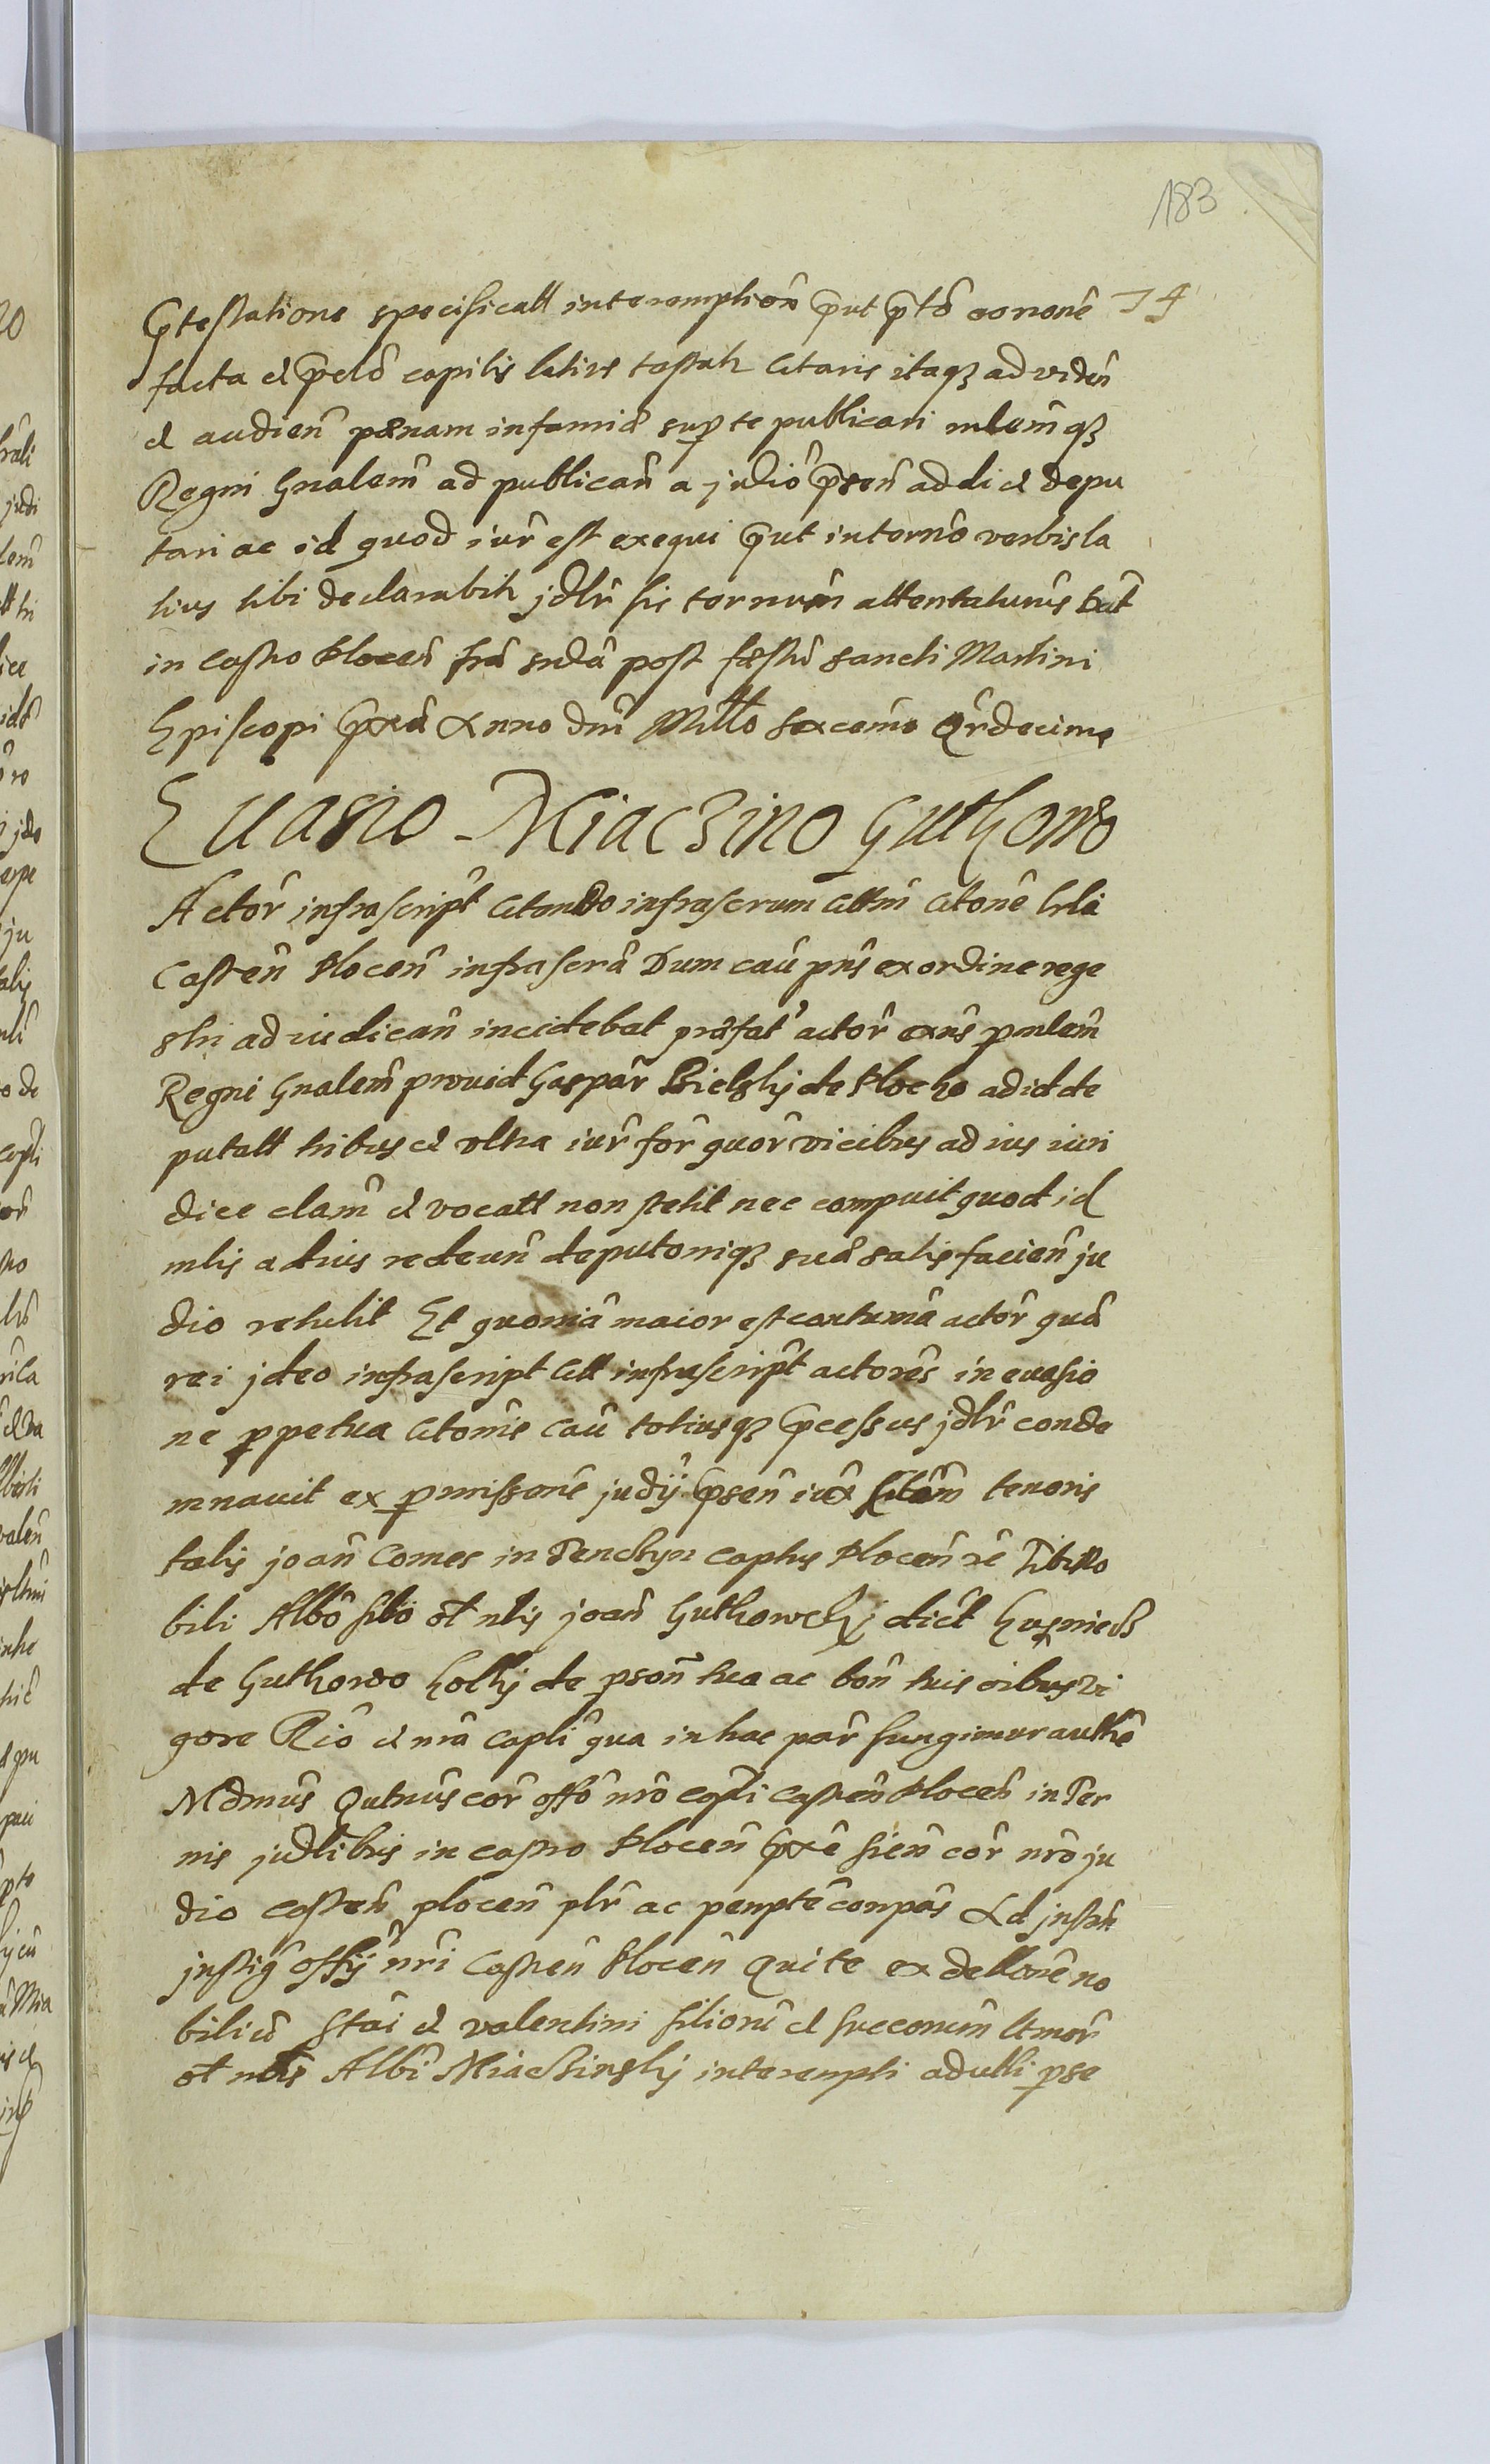 183
Ptestatione specificatt interemption put ptō eo nonē 74
facta et pctō capitis latius tastatr Citaris itaqꝫ ad viden̄
et audien̄ pœnam infamiæ sup te publicari mlem̄qꝫ
Regni Gnalem̄ ad publican̄ a judiō psen̄ addi et depu
tari ac id quod iur̄ est exequi put in ternō verbis la
tius tibi declarabitr jdlr̄ sis termin attentaturus Dat̄
in Castro Plocen̄ fra scda post festū sancti Martini
Episcopi pxa Anno dni Millō Sexcenīo Qr̄decimo
Euasio Miaczino Guthowo
Actor̄ infrascript̄ Citando infrascrum Cittm̄ Citonē
Castren̄ Plocen̄ infrascrā Dum cau pns ex ordine rege
stri ad iudican̄ incidebat præfat' actor̄ exns p mlem̄
Regni Gnalem̄ prouid Gaspar̄ Bielsky de Plocko ad id de
putatt tribus et vltra iur̄ for̄ quor̄ vicibus ad ius iuri
dice clam̄ et vocatt non stetit nec comparuit quod id
mlis ad ius redeun̄ deputoniqꝫ suæ satisfacien̄ ju
dio retulit Et quoniā maior est contumā actor̄ quā
rei jdeo infrascript Citt infrascript̄ actorēs in euasio
ne ppetua Citonis cau totiusqꝫ pcessus jdlr̄ conde
mnauit ex pmissionē judij psen̄ iux Citōm tenoris
talis joan̄ Comes in Tenchyn Captus Plocen̄ rē Tibi No
bili Albō filio ol nlis joan̄ Guthowsky dict
de Guthowo Golly de pson̄ tua ac bon̄ tuis oibus vi
gore Riō et nrā Capli qua in hac par̄ fungimur authē
Mdmūs Qutnūs cor̄ offō nrō Capli Castren̄ Plocen̄ in Ter
nis judlibus in Castro Plocen̄ pxē fien̄ cor̄ nrō ju
dio Castren̄ plocen̄ plr̄ ac pemptē compās Ad jnstan
jnstig offij nri Castren̄ Plocen̄ Qui te ex dellonē no
biliū Stāi et Valentini filiorū et succorum
ol nlis Albī Miacsinsky interempti adulti p se